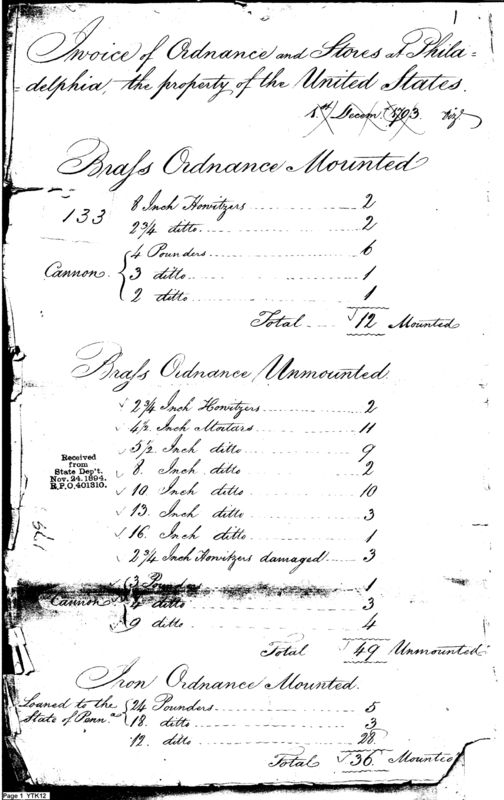 1
Invoice of Ordnance and Stores at Phila=
delphia, the property of the United States.
1st Decem.r 1793. viz.t
Brass Ordnance Mounted
133
8 Inch Howitzers 2
2 3/4 ditto 2
Cannon. { 4 Pounders 6
3 ditto 1
2 ditto 1
Total 12 Mounted
Brass Ordnance Unmounted
✓ 2 3/4 Inch Howitzers 2
✓ 4 1/2 Inch Mortars 11
✓ 5 1/2 Inch ditto 9
✓ 8. Inch ditto 2
✓ 10 Inch ditto 10
✓ 13. Inch ditto 3
✓ 16. Inch ditto 1
✓ 2 3/4 Inch Howitzers damaged 3
Received
from
State Dep't.
Nov. 24. 1894.
R.P.O. 401310.
Cannon { 3 Pounders 1
4 ditto 3
9 ditto 4
Total 49 Unmounted
Iron Ordnance Mounted.
Loaned to the
State of Penn.a
{ 24 Pounders 5
18. ditto 3
12. ditto 28
Total 36 Mounted
Page 1 YTK12